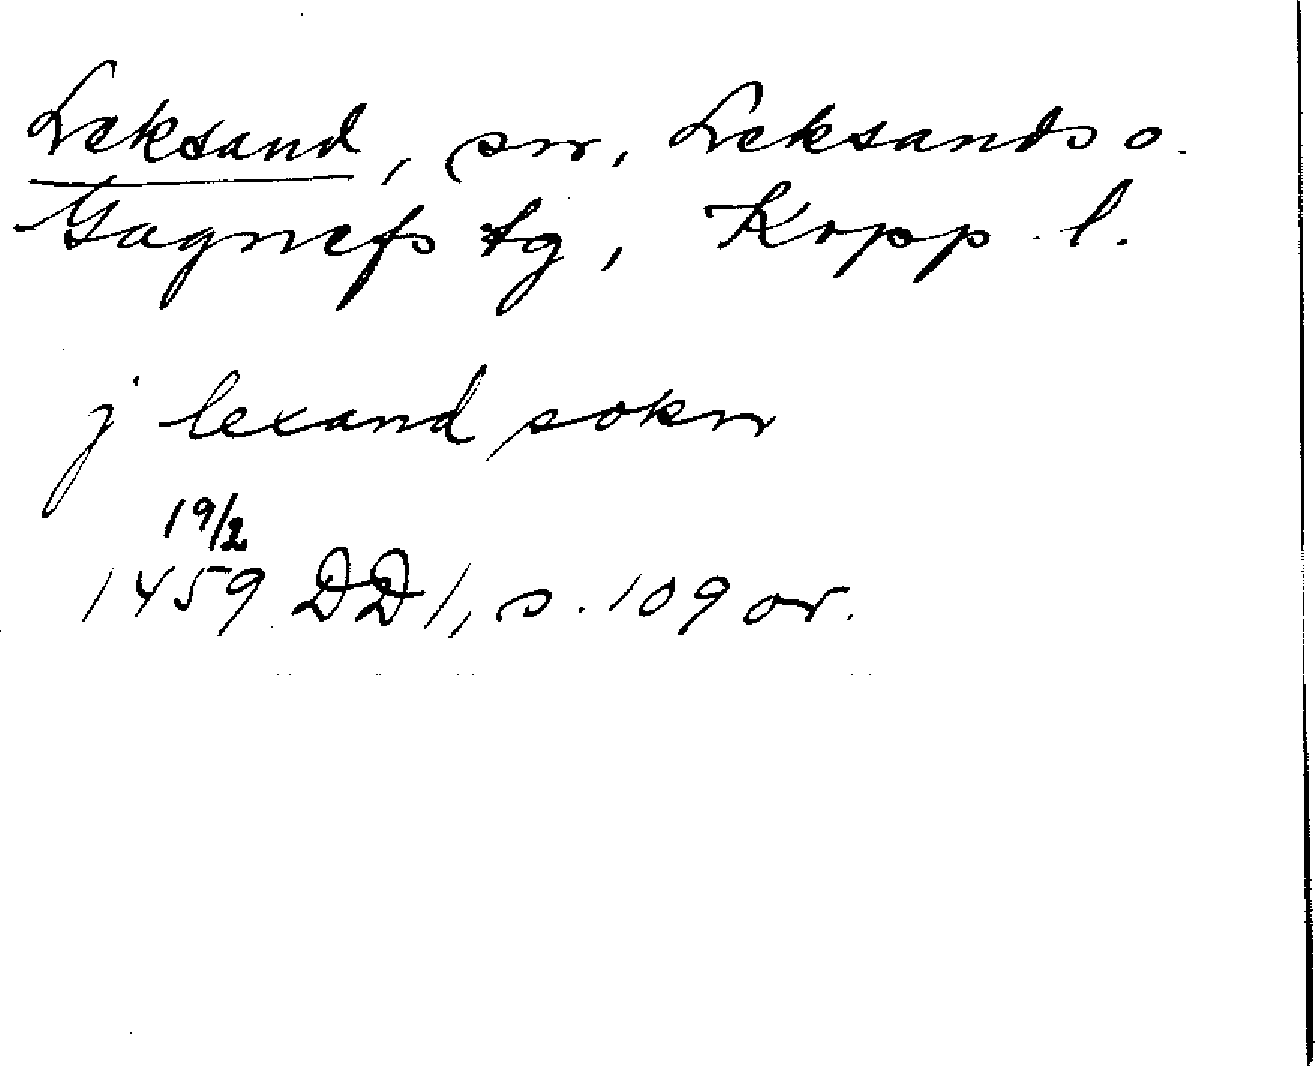 Leksand, sn, Leksands o.
Gagnefs tg, Kopp. l.
j lexand sokn
19/2
1459 DD 1, s. 109 or.